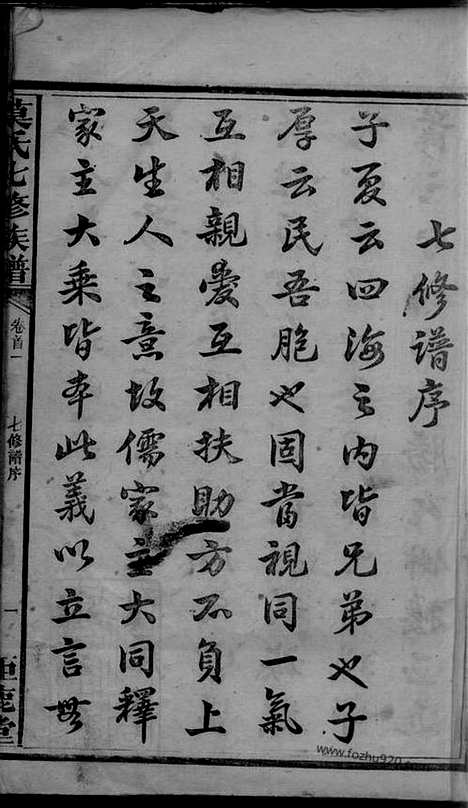 七修譜序
子夏云四海之內皆兄弟也子
厚云民吾胞也固當視同一氣
互相親愛互相扶助方不負上
天生人之意故儒家主大同釋
家主大乘皆本此義以立言無
莫氏七修族譜
卷首一
七修譜序
一
鉅鹿堂
www.fozhu920.com